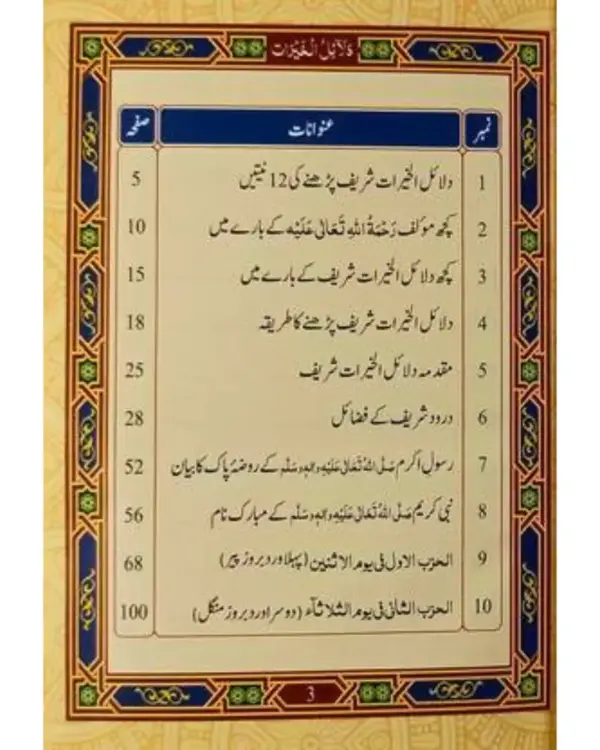 دَلَآئِلُ الْخَيْرَات
نمبر عنوانات صفحہ
1 دلائل الخیرات شریف پڑھنے کی 12 نیتیں 5
2 کچھ مؤلف رَحْمَۃُ اللہِ تَعَالٰی عَلَیْہ کے بارے میں 10
3 کچھ دلائل الخیرات شریف کے بارے میں 15
4 دلائل الخیرات شریف پڑھنے کا طریقہ 18
5 مقدمہ دلائل الخیرات شریف 25
6 درود شریف کے فضائل 28
7 رسولِ اکرم صَلَّی اللہُ تَعَالٰی عَلَیْہِ واٰلِہٖ وَسَلَّم کے روضۂ پاک کا بیان 52
8 نبی کریم صَلَّی اللہُ تَعَالٰی عَلَیْہِ واٰلِہٖ وَسَلَّم کے مبارک نام 56
9 الحزب الاول فی یوم الاثنین (پہلا ورد بروز پیر) 68
10 الحزب الثانی فی یوم الثلاثآء (دوسرا ورد بروز منگل) 100
3